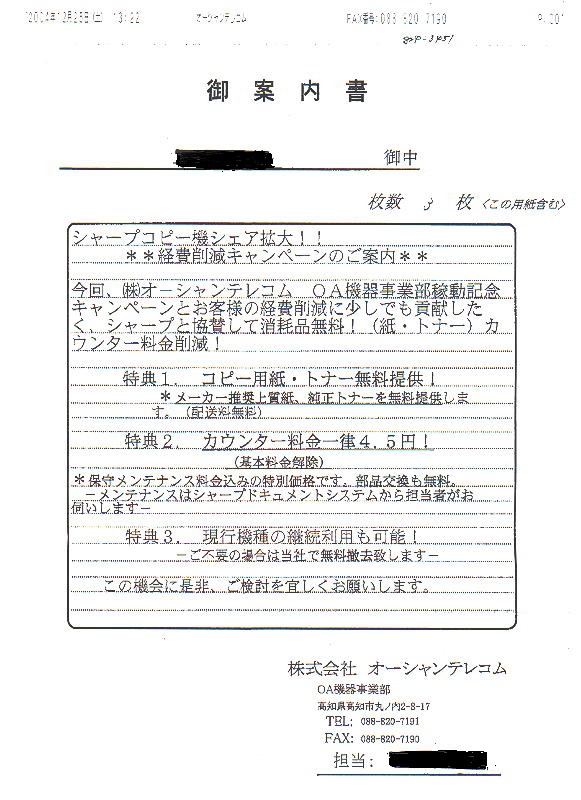 2004年12月25日(土) 13:22 オーシャンテレコム FAX番号:088 820 7190 P. 001
御案内書
御中
枚数 3 枚 〈この用紙含む〉
シャープコピー機シェア拡大！！
＊＊経費削減キャンペーンのご案内＊＊
今回、㈱オーシャンテレコム ＯＡ機器事業部稼動記念
キャンペーンとお客様の経費削減に少しでも貢献した
く、シャープと協賛して消耗品無料！（紙・トナー）カ
ウンター料金削減！
特典１． コピー用紙・トナー無料提供！
＊メーカー推奨上質紙、純正トナーを無料提供しま
す。（配送料無料）
特典２． カウンター料金一律４.５円！
（基本料金解除）
＊保守メンテナンス料金込みの特別価格です。部品交換も無料。
－メンテナンスはシャープドキュメントシステムから担当者がお
伺いします－
特典３． 現行機種の継続利用も可能！
－ご不要の場合は当社で無料撤去致します－
この機会に是非、ご検討を宜しくお願いします。
株式会社 オーシャンテレコム
OA機器事業部
高知県高知市丸ノ内2-8-17
TEL: 088-820-7191
FAX: 088-820-7190
担当: